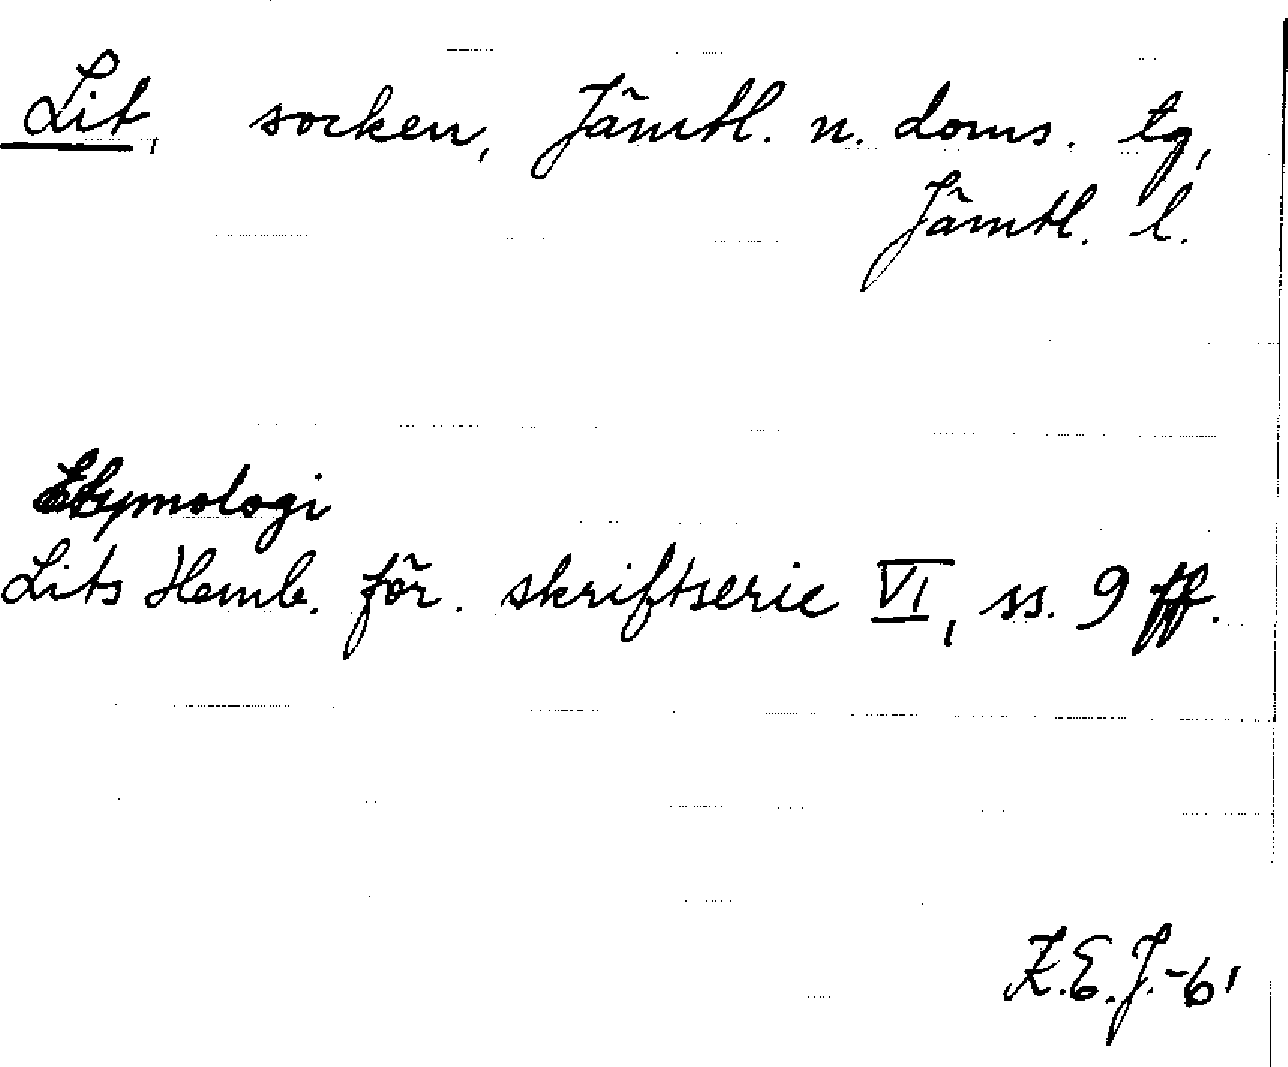 Lit, socken, Jämtl. n. doms. tg,
Jämtl. l.
Etymologi
Lits Hemb. för. skriftserie VI, ss. 9 ff.
K.E.J.-61